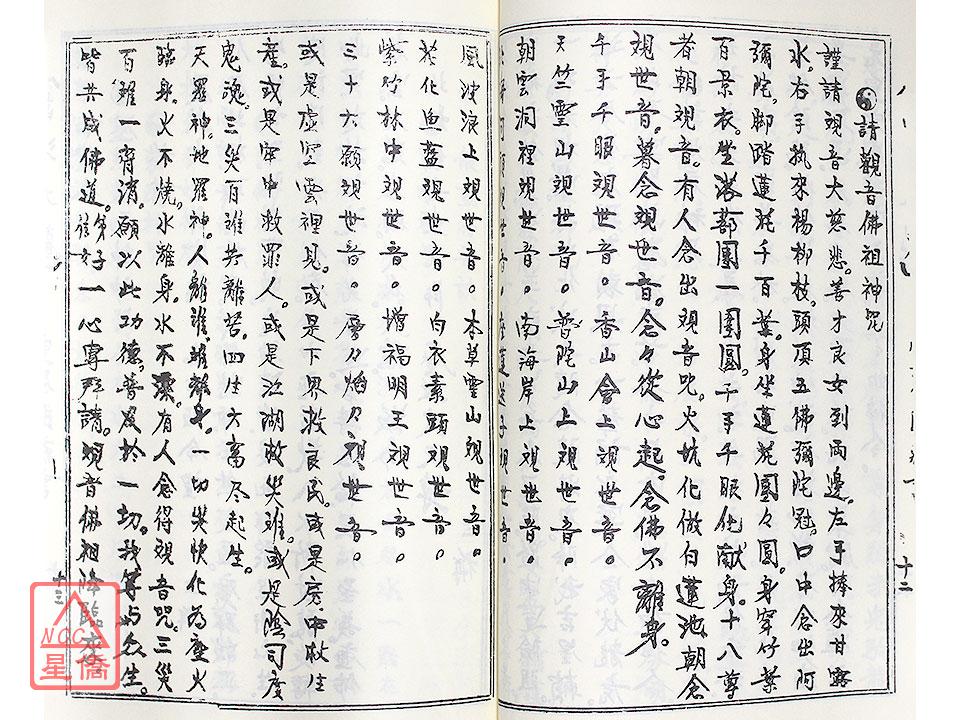 請觀音佛祖神咒
謹請觀音大慈悲。善才良女到兩邊。左手捧來甘露
水。右手执來楊柳枝。頭頂五佛彌陀冠。口中念出阿
彌陀。脚踏蓮花千百葉。身坐蓮花團々圓。身穿竹葉
百景衣。坐落蔀團一團圓。千手千眼化献身。十八尊
者朝观音。有人念出观音咒。火坑化做白蓮池。朝念
观世音。暮念观世音。念々從心起。念佛不離身。
千手千眼观世音。香山會上观世音。
天竺靈山观世音。普陀山上观世音。
朝雲洞裡观世音。南海岸上观世音。
观世音。蓮送子观世音。
風波浪上观世音。本草雲山观世音。
花化魚藍观世音。白衣素頭观世音。
紫竹林中观世音。增福明王观世音。
三十六願观世音。層々焰々观世音。
或是虛空雲裡見。或是下界救良民。或是房中救生
產。或是牢中救罪人。或是江湖救災难。或是陰司度
鬼魂。三災百难若離苦。四生六畜尽起生。
天羅神。地羅神。人離难。难離身。一切災快化為塵火
臨身。火不燒。水離身。水不濕。有人念得观音咒。三災
百难一齊消。願以此功德。普及於一切。我等与众生。
皆共成佛道。弟子一心專拜請。观音佛祖降臨來
十二
十三
NCC
星僑